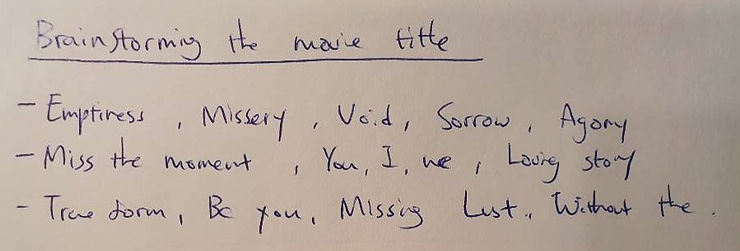 Brainstorming the movie title
- Emptiness, Missery, Void, Sorrow, Agony
- Miss the moment, You, I, we, Loving story
- True form, Be you, Missing Lust., Without the.